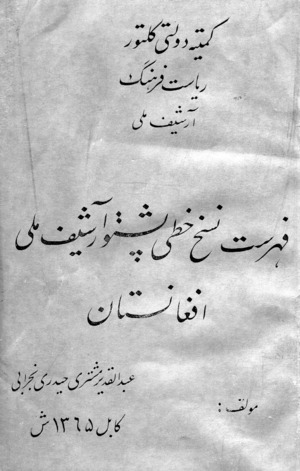 کمیته دولتی کلتور
ریاست فرهنگ
آرشیف ملی
فهرست نسخ خطی پشتو آرشیف ملی
افغانستان
مولف: عبدالقدیر مشتری حیدری نجرابی
کابل ۱۳۶۵ ش